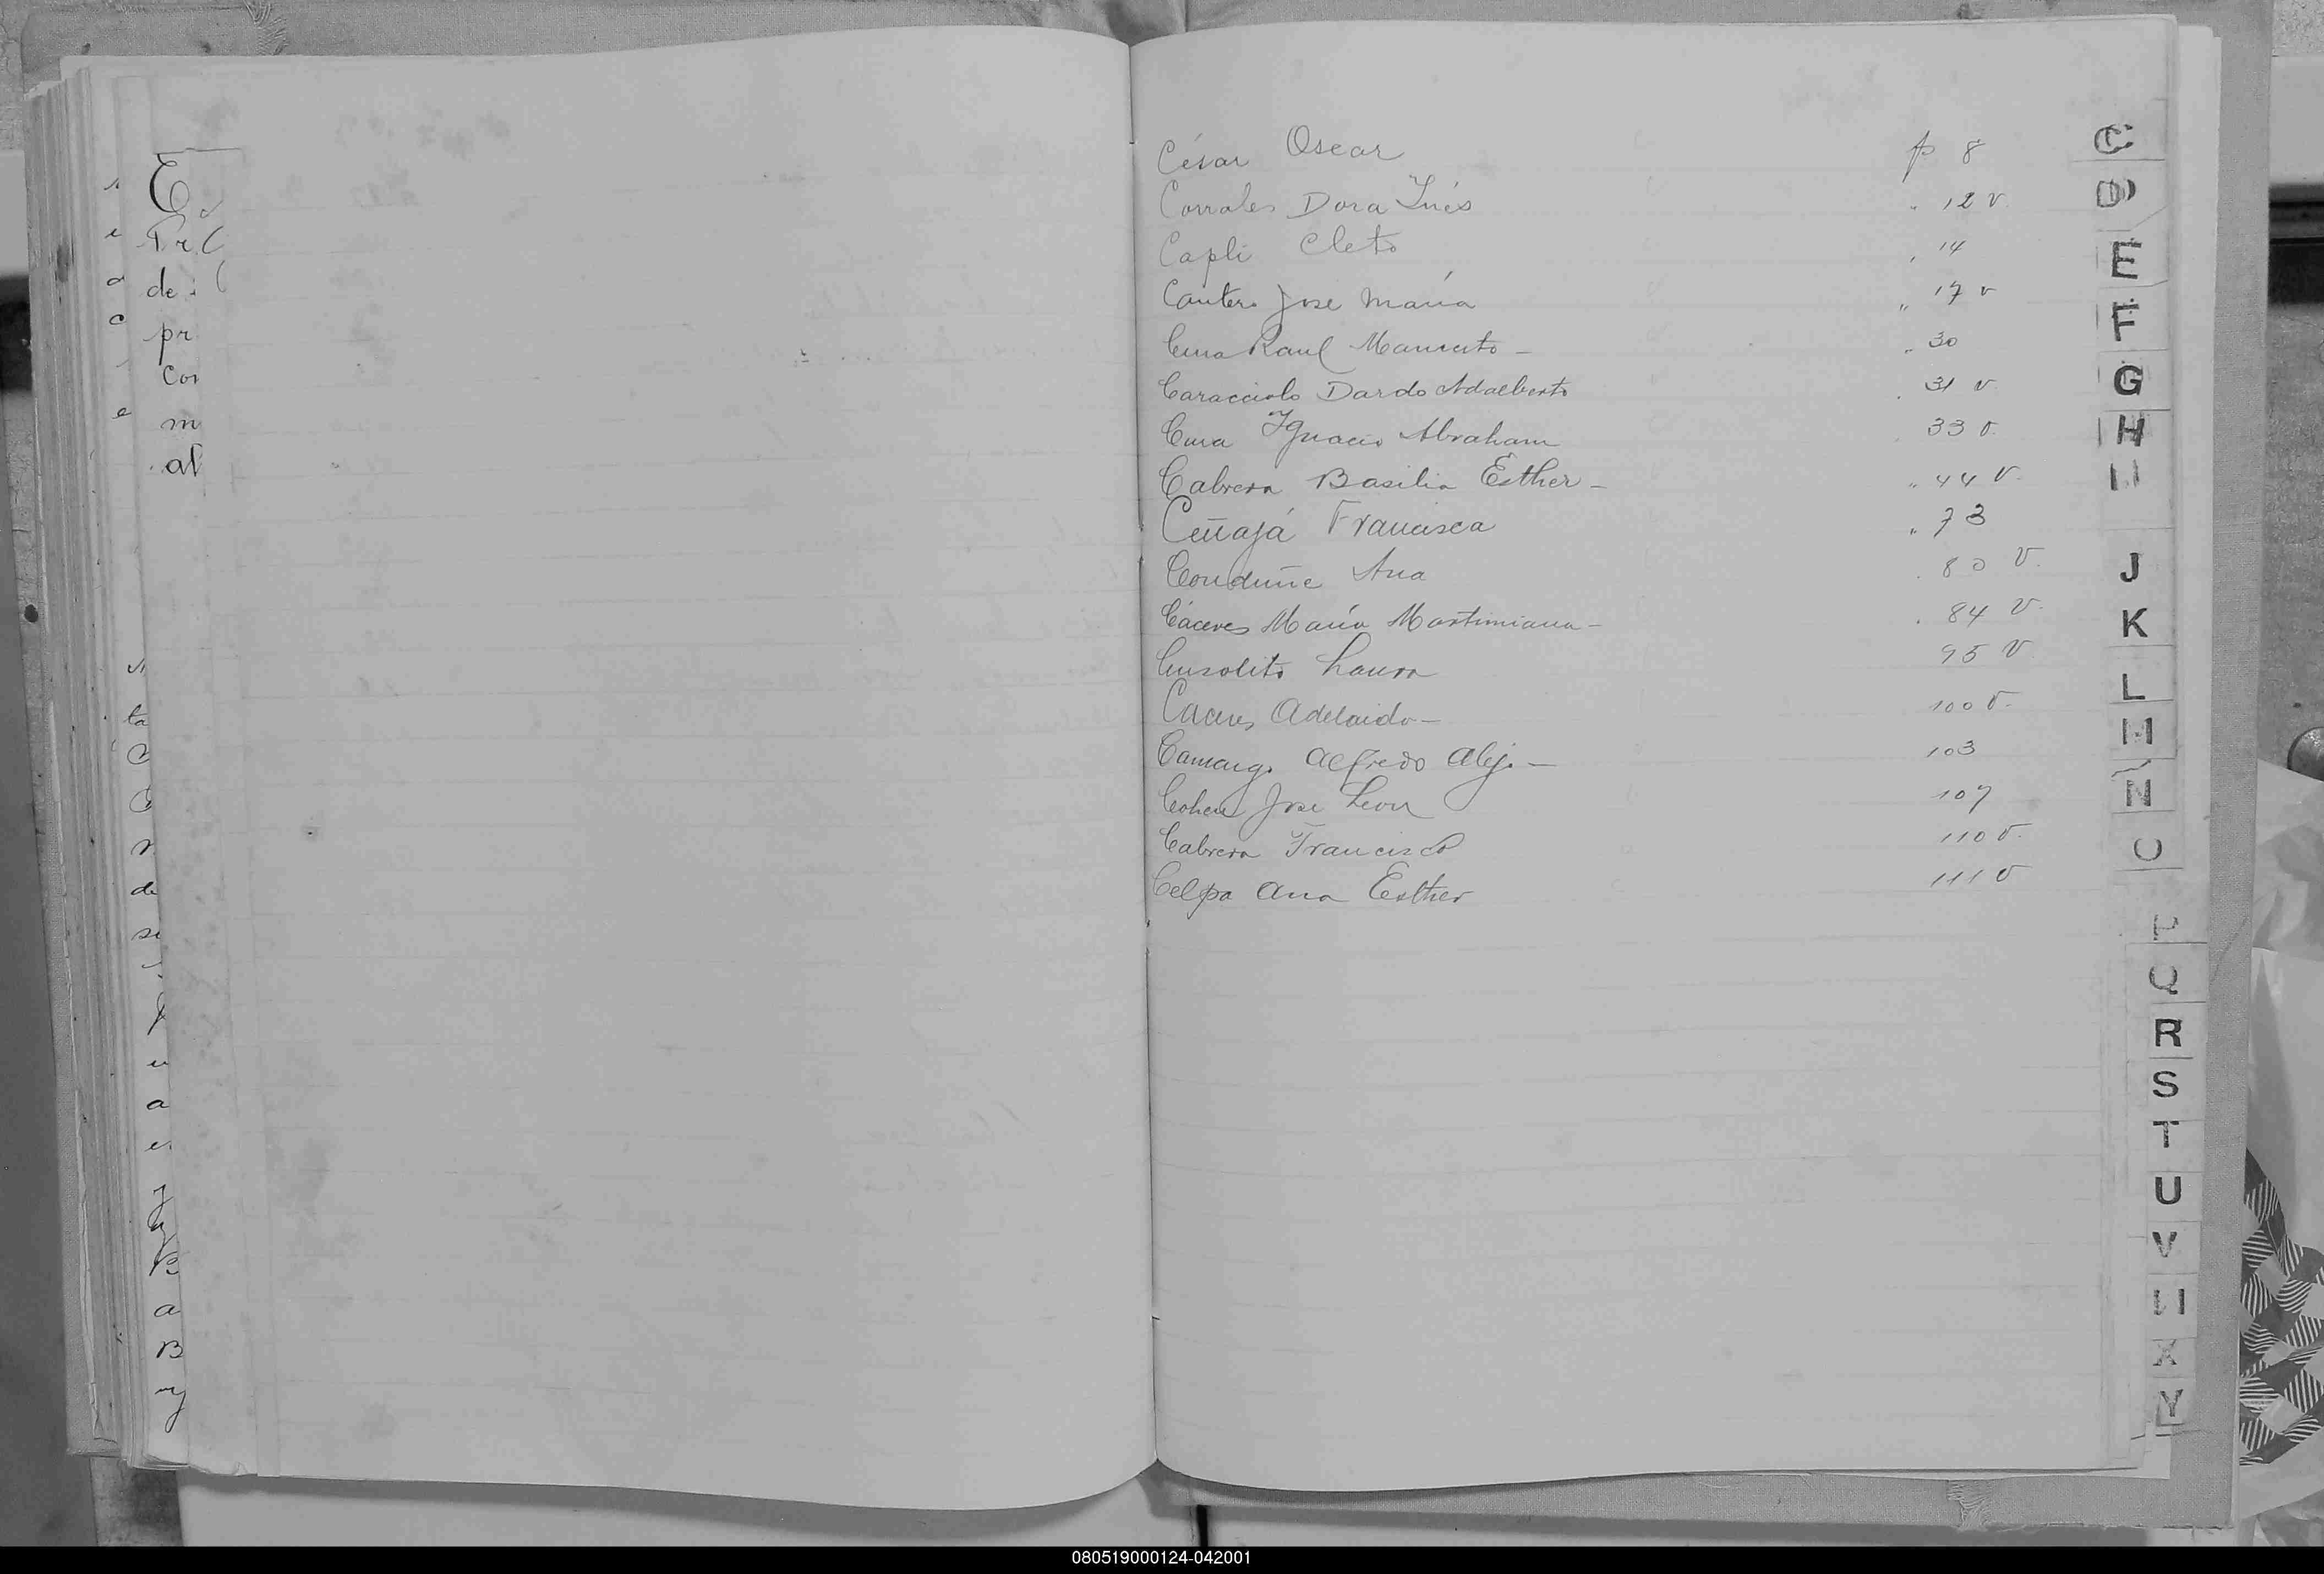 César Oscar p 8
Corrales Dora Inés " 12 v.
Capli Cleto " 14
Cantero Jose María " 17 v
Raul " 30
Caracciolo Dardo Adalberto " 31 v
Cura Ignacio Abraham 33 v.
Cabrera Basilia Esther - " 44 v.
Ceñajá Francisca " 73
Conduñe Ana 80 v.
Cáceres María Martimiana - 84 v.
Laura 95 v
Caceres Adelaida - 100 v.
Camargo Alfredo Alejo - 103
Cohen Jose Leon 107
Cabrera Francisco 110 v.
Celpa Ana Esther 111 v
C
D
E
F
G
H
J
K
L
M
N
O
P
Q
R
S
T
U
V
X
Y
080519000124-042001